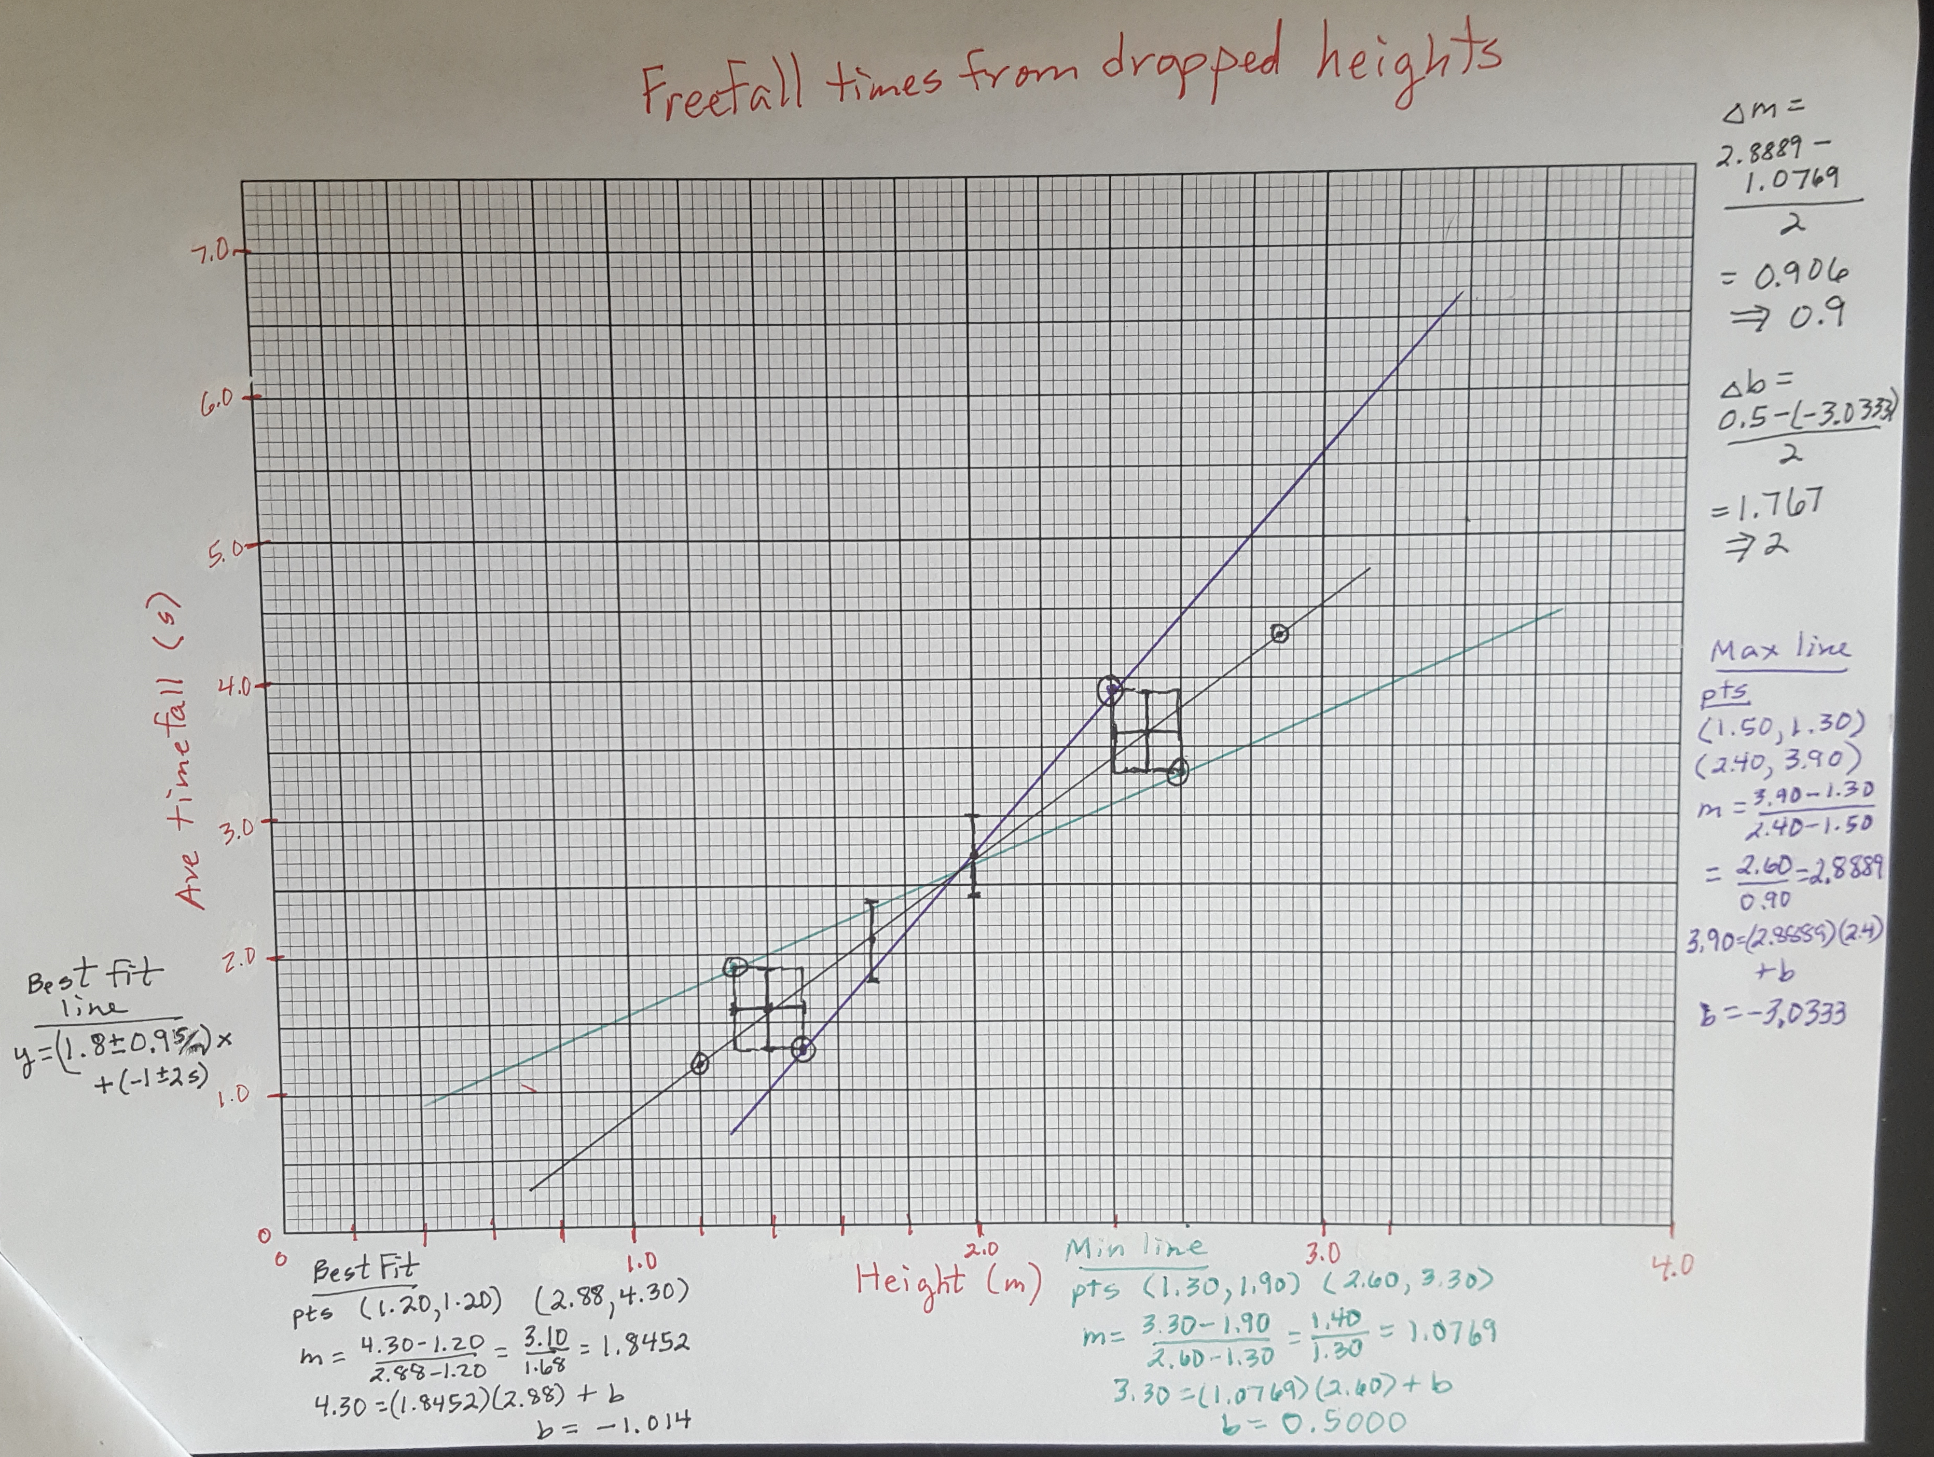 Freefall times from dropped heights
Δm =
2.8889 -
1.0769
2
= 0.906
⇒ 0.9
Δb =
0.5-(-3.0333)
2
= 1.767
⇒ 2
Max line
pts
(1.50, 1.30)
(2.40, 3.90)
m = 3.90-1.30
2.40-1.50
= 2.60 = 2.8889
0.90
3.90=(2.8889)(2.4)
+b
b = -3.0333
7.0
6.0
5.0
4.0
3.0
2.0
1.0
0
Ave timefall (s)
Best fit
line
y=(1.8±0.9 s/m)x
+(-1±2s)
0
1.0
2.0
3.0
4.0
Height (m)
Best Fit
pts (1.20, 1.20) (2.88, 4.30)
m = 4.30-1.20 = 3.10 = 1.8452
2.88-1.20 1.68
4.30 = (1.8452)(2.88) + b
b = -1.014
Min line
pts (1.30, 1.90) (2.60, 3.30)
m = 3.30-1.90 = 1.40 = 1.0769
2.60-1.30 1.30
3.30 = (1.0769)(2.60) + b
b = 0.5000